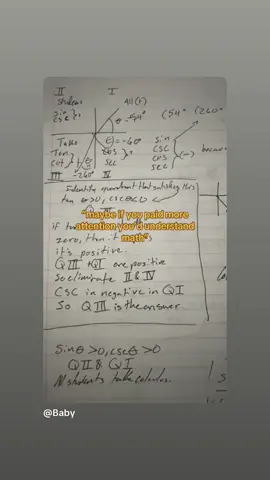 II I
Students All (+)
Sin
csc
θ = 54°
(54° (260°
Takes θ = -60°
Tan cos
cot sec
III -260° IV
Sin
CSC
cos (-) because
sec
Identify quadrant that satisfies
tan θ>0, csc θ<0
"maybe if you paid more
attention you'd understand
math"
zero, then
it's positive.
QIII + QI are positive
So eliminate II & IV
CSC in negative in QI
So QIII is the answer
Sin θ >0, csc θ >0
QII & QI
All students take calculus.
@Baby